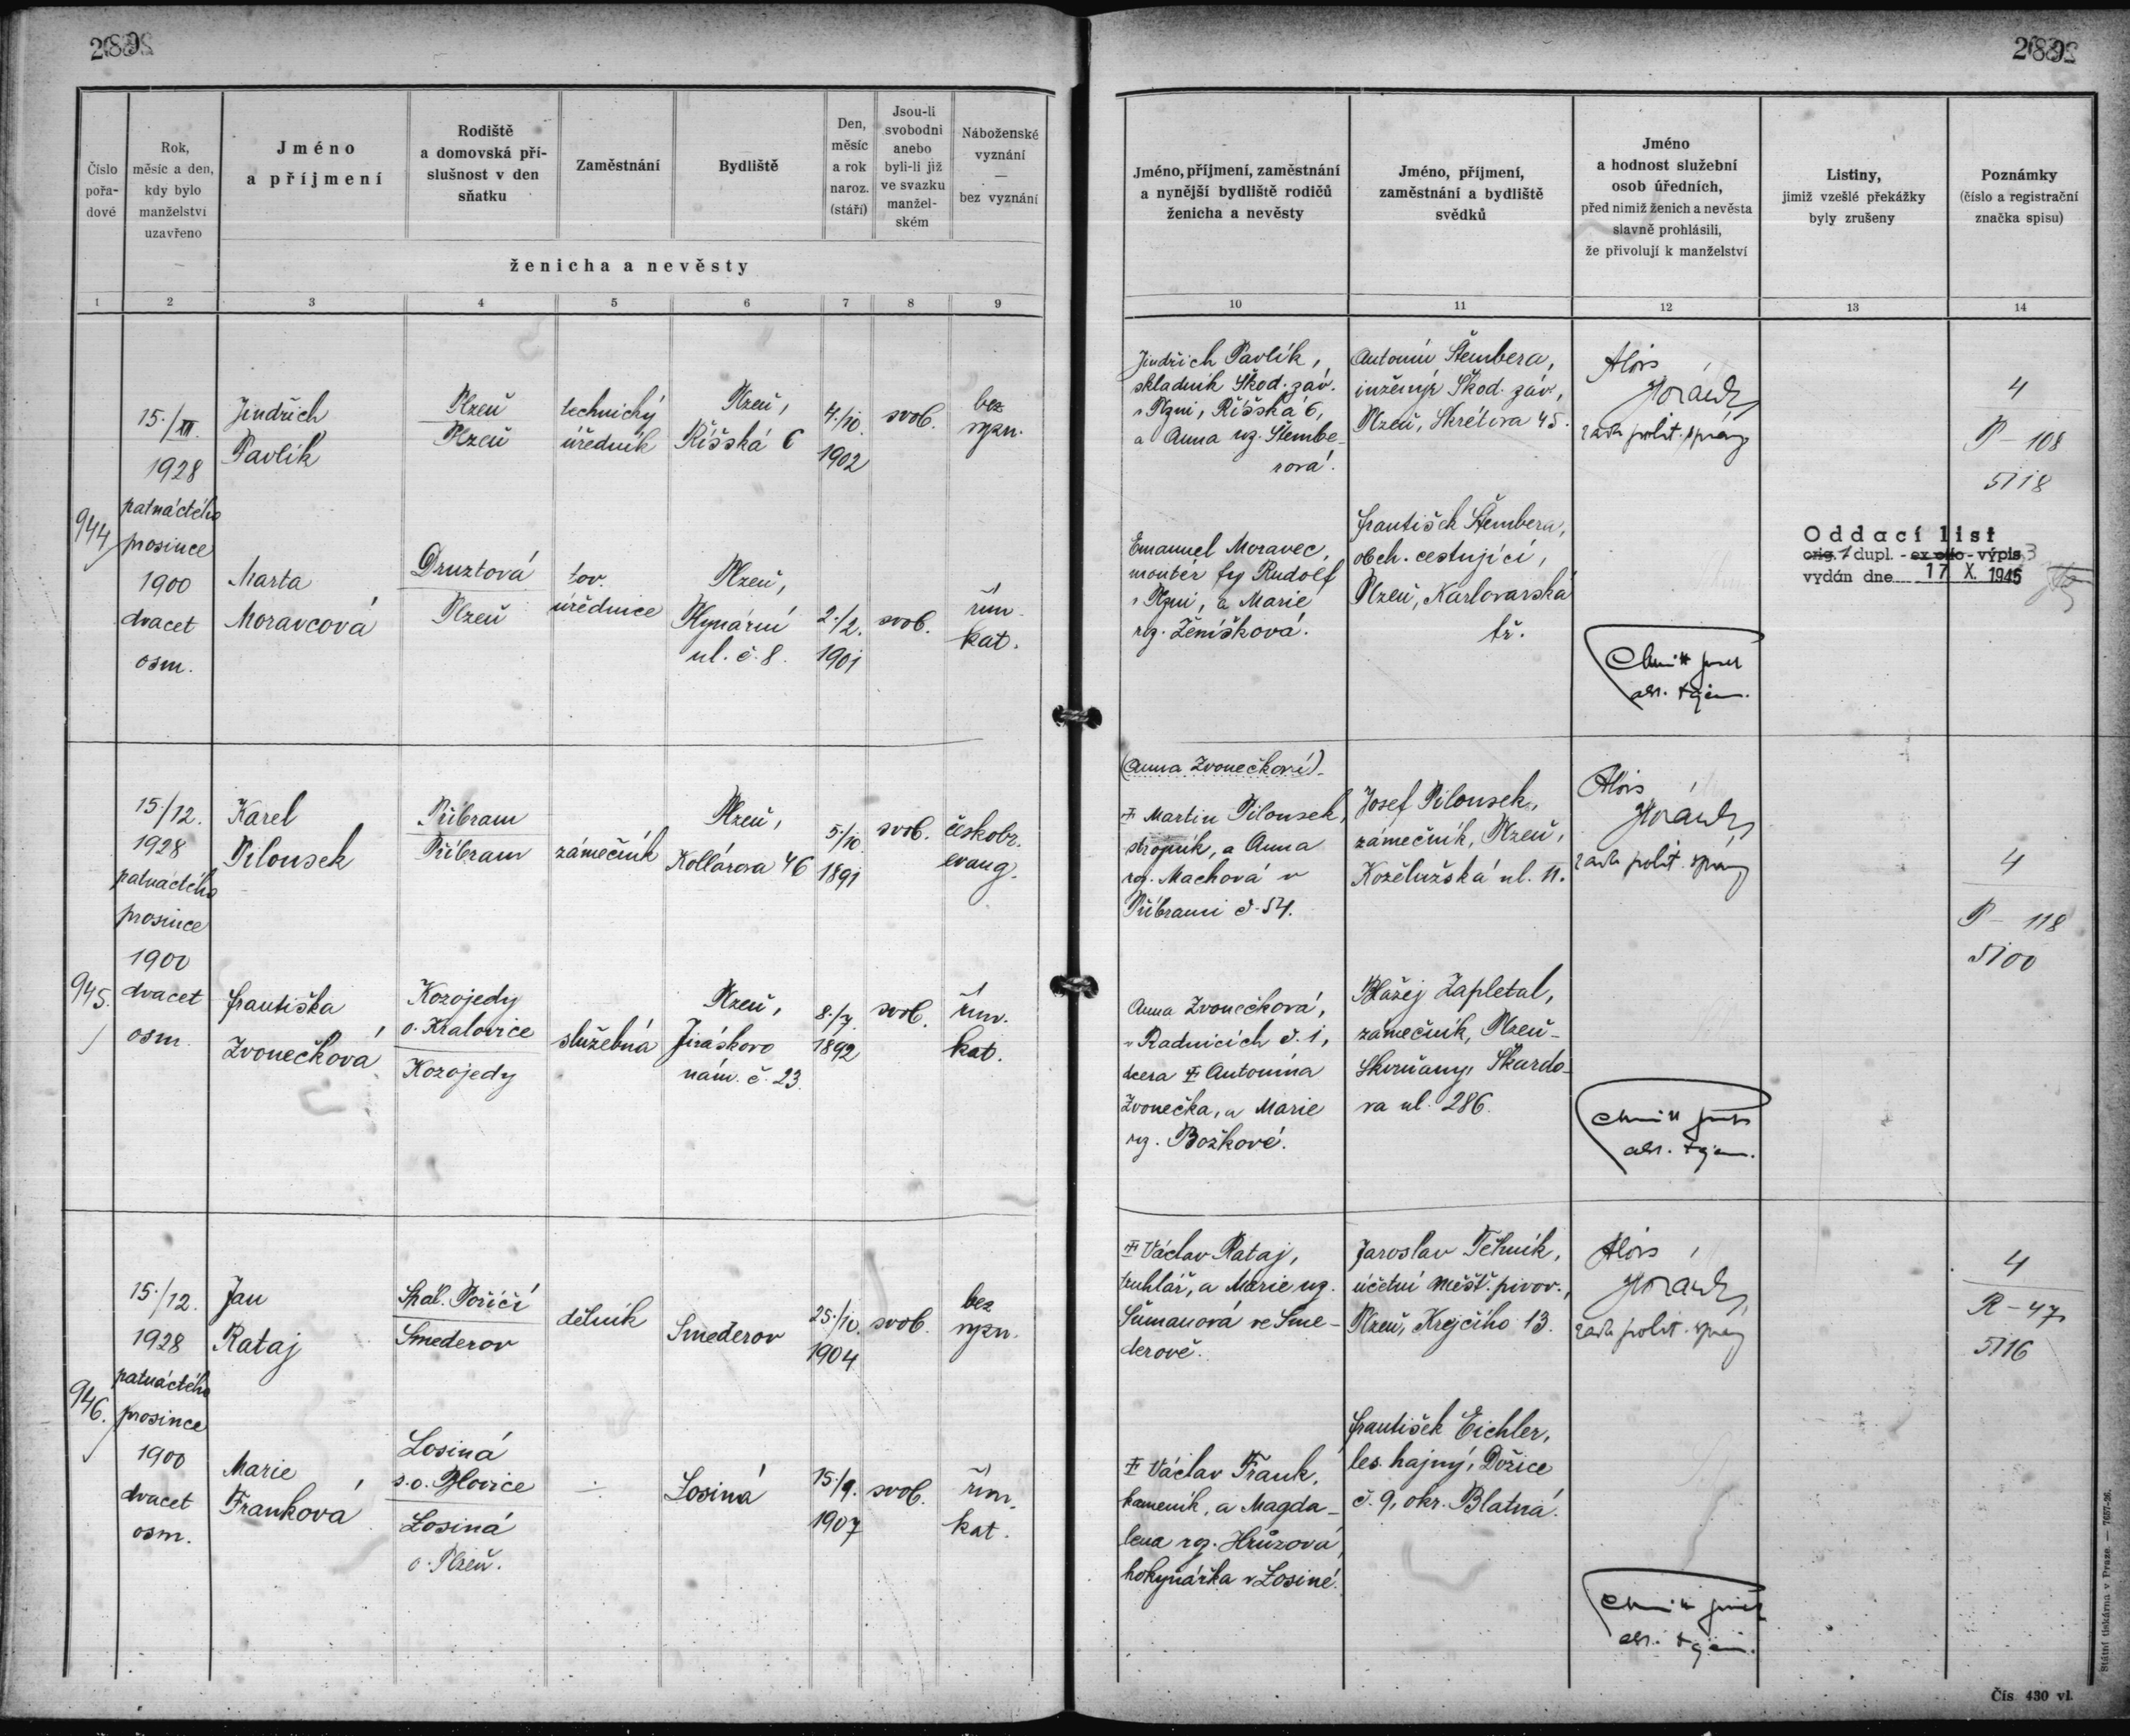 Číslo pořa-dové
Rok, měsíc a den, kdy bylo manželství uzavřeno
Jméno a příjmení
Rodiště a domovská pří-slušnost v den sňatku
Zaměstnání
Bydliště
Den, měsíc a rok naroz. (stáří)
Jsou-li svobodni anebo byli-li již ve svazku manžel-ském
Náboženské vyznání — bez vyznání
ženicha a nevěsty
1 2 3 4 5 6 7 8 9
944
15./XII.
1928
patnáctého
prosince
1900
dvacet
osm.
Jindřich
Pavlík
Plzeň
Plzeň
technický
úředník
Plzeň,
Říšská 6
4./10.
1902
svob.
bez
vyzn.
Marta
Moravcová
Druztová
Plzeň
tov.
úřednice
Plzeň,
Plynární
ul. č. 8.
2./2.
1901
svob.
řím.
kat.
945.
15./12.
1928
patnáctého
prosince
1900
dvacet
osm.
Karel
Pilousek
Příbram
Příbram
zámečník
Plzeň,
Kollárova 46
5./10.
1891
svob.
českobr.
evang.
Františka
Zvonečková
Kozojedy
o. Kralovice
Kozojedy
služebná
Plzeň,
Jiráskovo
nám. č. 23.
8./7.
1892
svob.
řím.
kat.
946.
15./12.
1928
patnáctého
prosince
1900
dvacet
osm.
Jan
Rataj
Spál. Poříčí
Smederov
dělník
Smederov
25./10.
1904
svob.
bez
vyzn.
Marie
Franková
Losiná
s.o. Blovice
Losiná
o. Plzeň.
Losiná
15./9.
1907
svob.
řím.
kat.
Jméno, příjmení, zaměstnání a nynější bydliště rodičů ženicha a nevěsty
Jméno, příjmení, zaměstnání a bydliště svědků
Jméno a hodnost služební osob úředních, před nimiž ženich a nevěsta slavně prohlásili, že přivolují k manželství
Listiny, jimiž vzešlé překážky byly zrušeny
Poznámky (číslo a registrační značka spisu)
10 11 12 13 14
Jindřich Pavlík,
skladník Škod. záv.
v Plzni, Říšská 6,
a Anna roz. Štembe-
rová.
Antonín Štembera,
inženýr Škod. záv.,
Plzeň, Skrétova 45.
Alois
Horák
rada polit. správy
4
P - 108
5118
Emanuel Moravec,
montér fy Rudolf
v Plzni, a Marie
roz. Ženíšková.
František Štembera,
obch. cestující,
Plzeň, Karlovarská
tř.
Oddací list
orig. / dupl. - ex offo - výpis
vydán dne 17 X. 1945
abs. tajem.
(Anna Zvonečková)
Martin Pilousek,
strojník, a Anna
roz. Machová v
Příbrami č. 54.
Josef Pilousek,
zámečník, Plzeň,
Koželužská ul. 11.
Alois
Horák
rada polit. správy
4
P - 118
5100
Anna Zvonečková,
v Radnicích č. 1,
dcera Antonína
Zvonečka, a Marie
roz. Božkové.
Blažej Zapletal,
zámečník, Plzeň-
Skvrňany, Škardo-
va ul. 286.
abs. tajem.
Václav Rataj,
truhlář, a Marie roz.
Šůmanová ve Sme-
derově.
Jaroslav Tětník,
účetní měšť. pivov.,
Plzeň, Krejčího 13.
Alois
Horák
rada polit. správy
4
R - 47
5116
Václav Frank,
kameník, a Magda-
lena roz. Hrůzová,
hokynářka v Losiné.
František Eichler,
les. hajný, Dožice
č. 9, okr. Blatná.
abs. tajem.
Státní tiskárna v Praze. — 7657-26.
Čís. 430 vl.